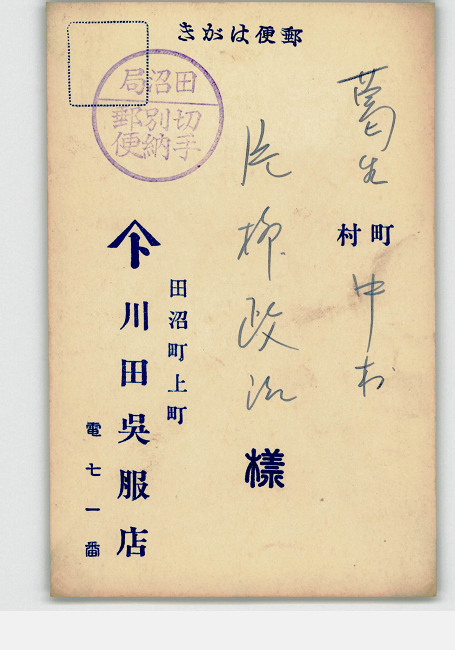 きがはは便郵
田沼局
切手
別納
郵便
葛生
町
村
中村
片柳政治
様
田沼町上町
川田呉服店
電七一番